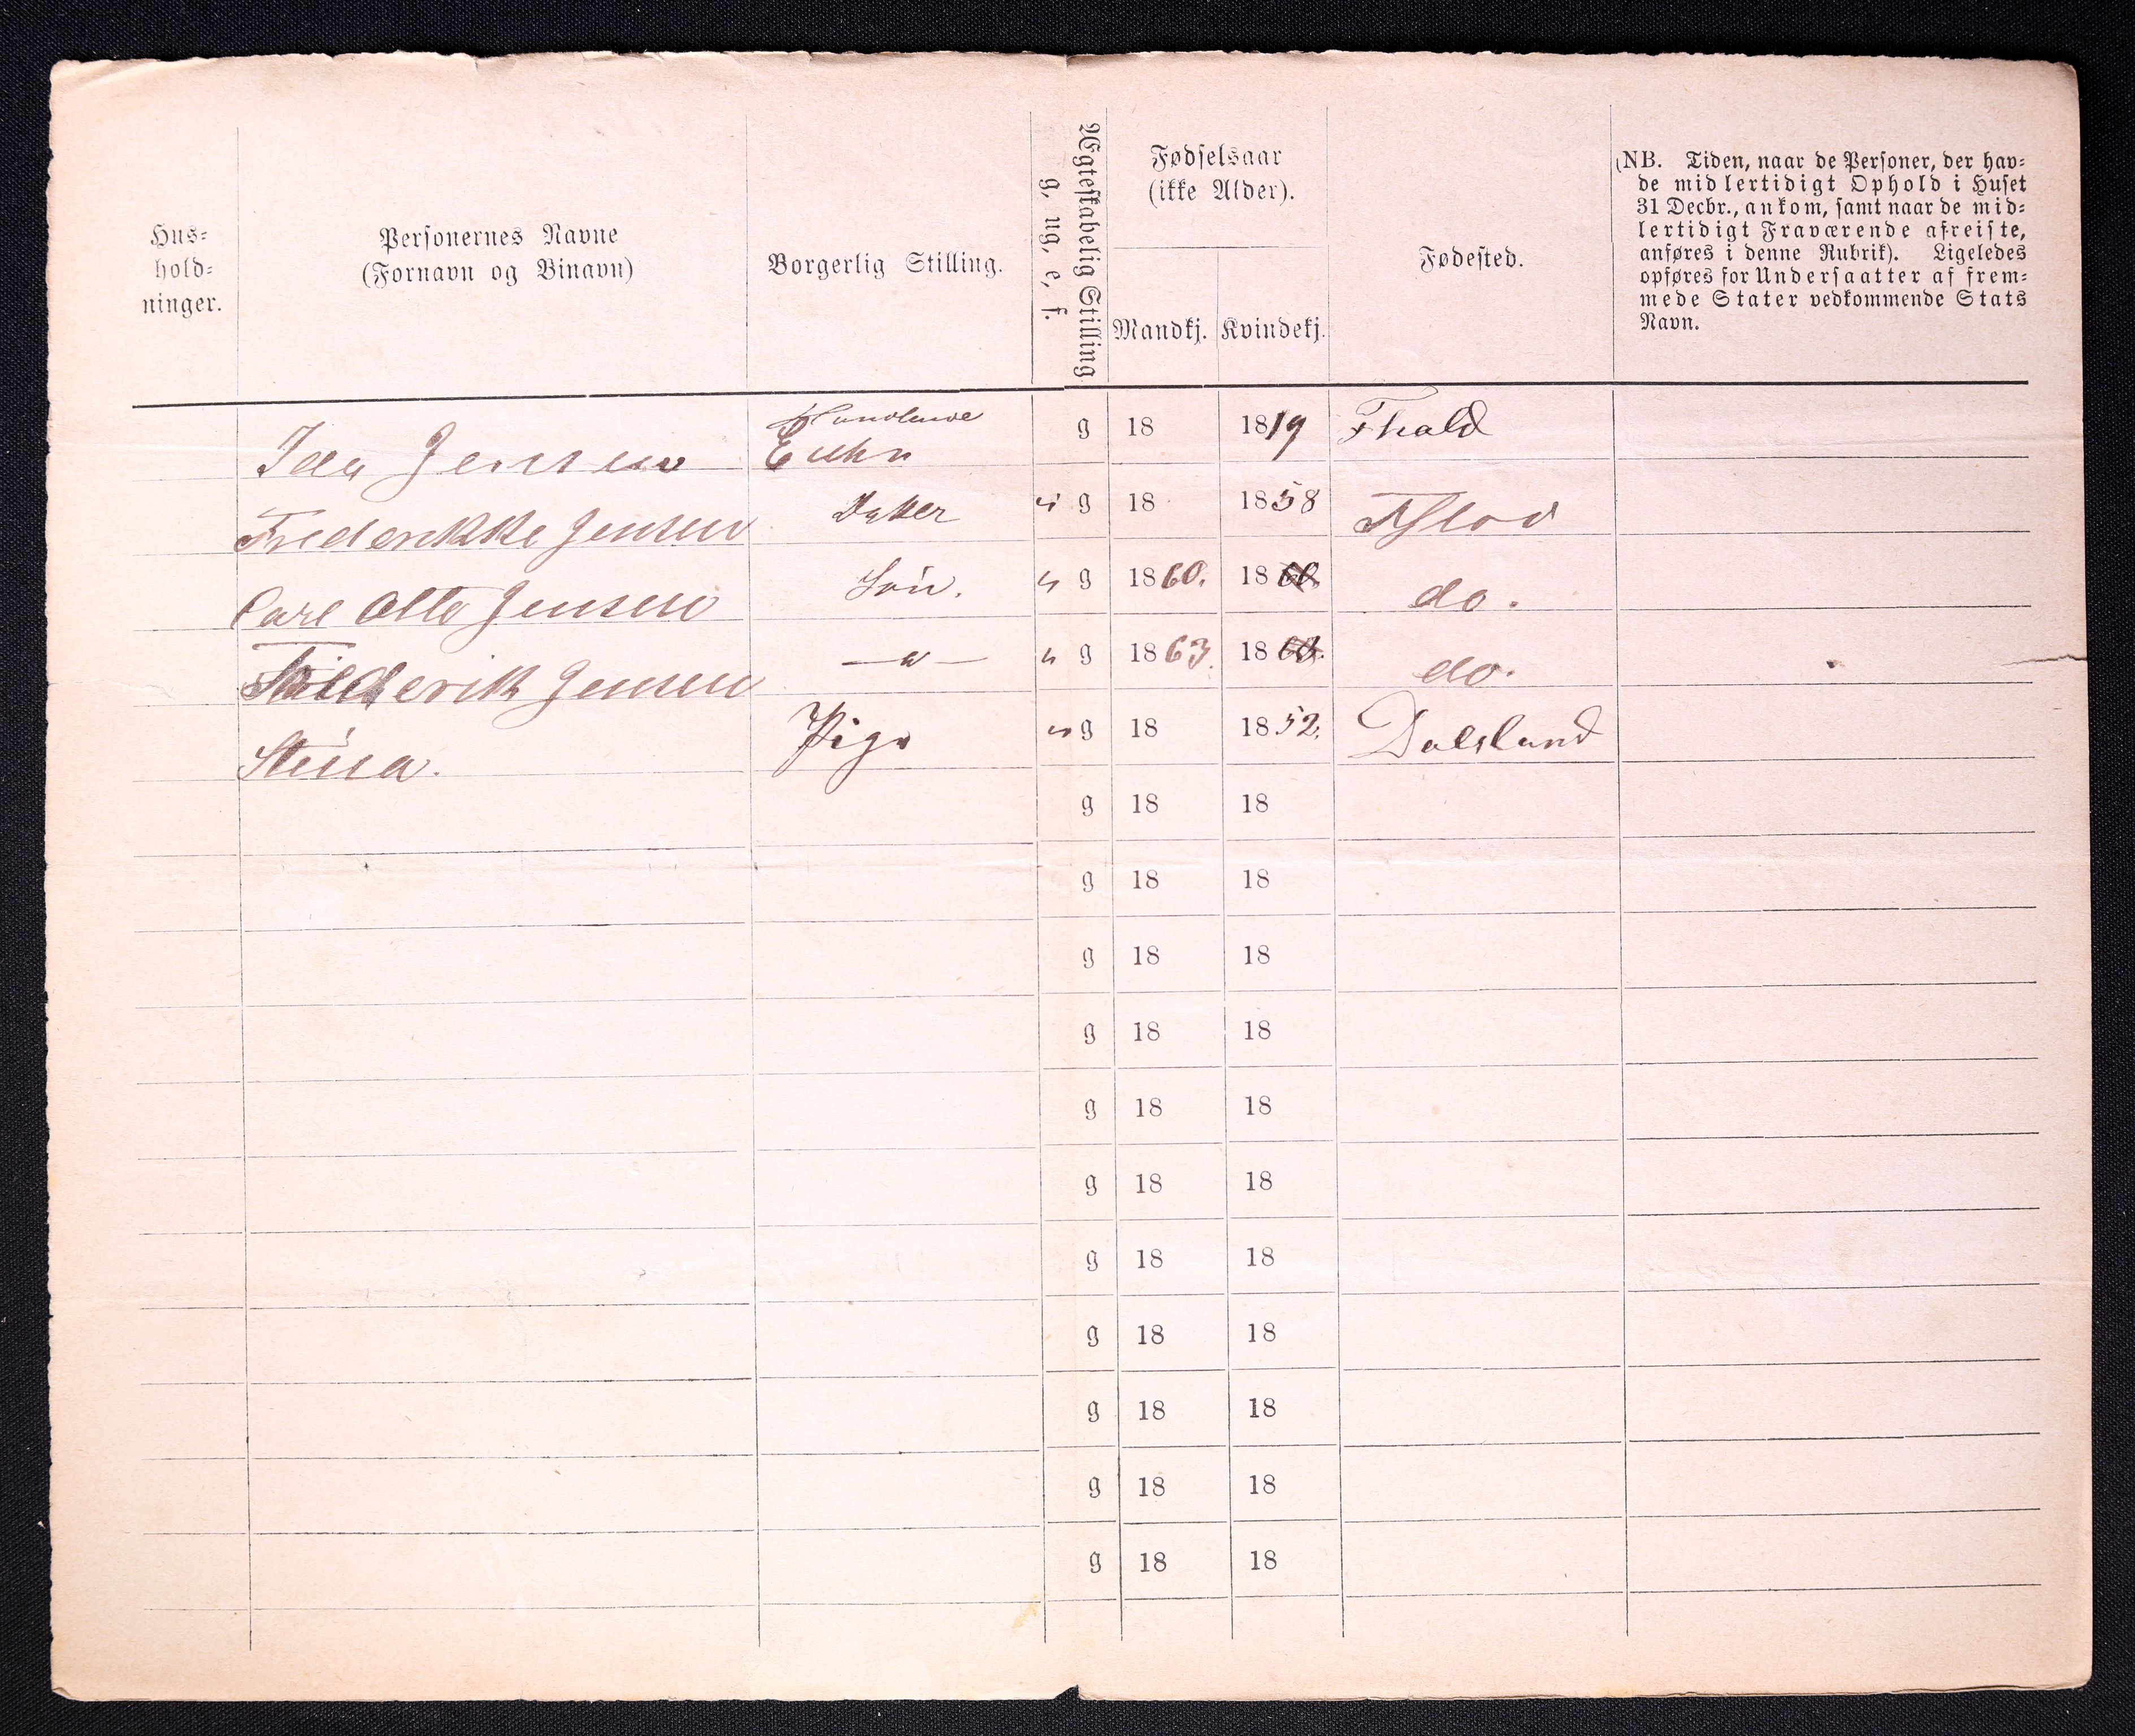 Hus-
hold-
ninger.
Personernes Navne
(Fornavn og Binavn)
Borgerlig Stilling.
Ægteskabelig Stilling
g, ug, e, f.
Fødselsaar
(ikke Alder).
Mandkj. Kvindekj.
Fødested.
(NB. Tiden, naar de Personer, der hav-
de midlertidigt Ophold i Huset
31 Decbr., ankom, samt naar de mid-
lertidigt Fraværende afreiste,
anføres i denne Rubrik). Ligeledes
opføres for Undersaatter af frem-
mede Stater vedkommende Stats
Navn.
Handlende
Ida Jensen Enke g 18 1819 Fhald
Frederikke Jensen Datter u g 18 1858
Carl Otto Jensen Søn. u g 1860. 18 60. do.
Frederik Jensen — " — u g 1863. 18 63. do.
Stina. Pige u g 18 1852. Dalsland
g 18 18
g 18 18
g 18 18
g 18 18
g 18 18
g 18 18
g 18 18
g 18 18
g 18 18
g 18 18
g 18 18